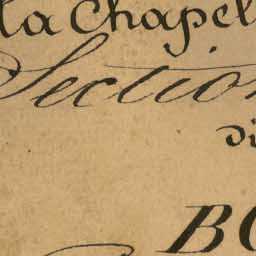 la Chapel
Section
di
BO